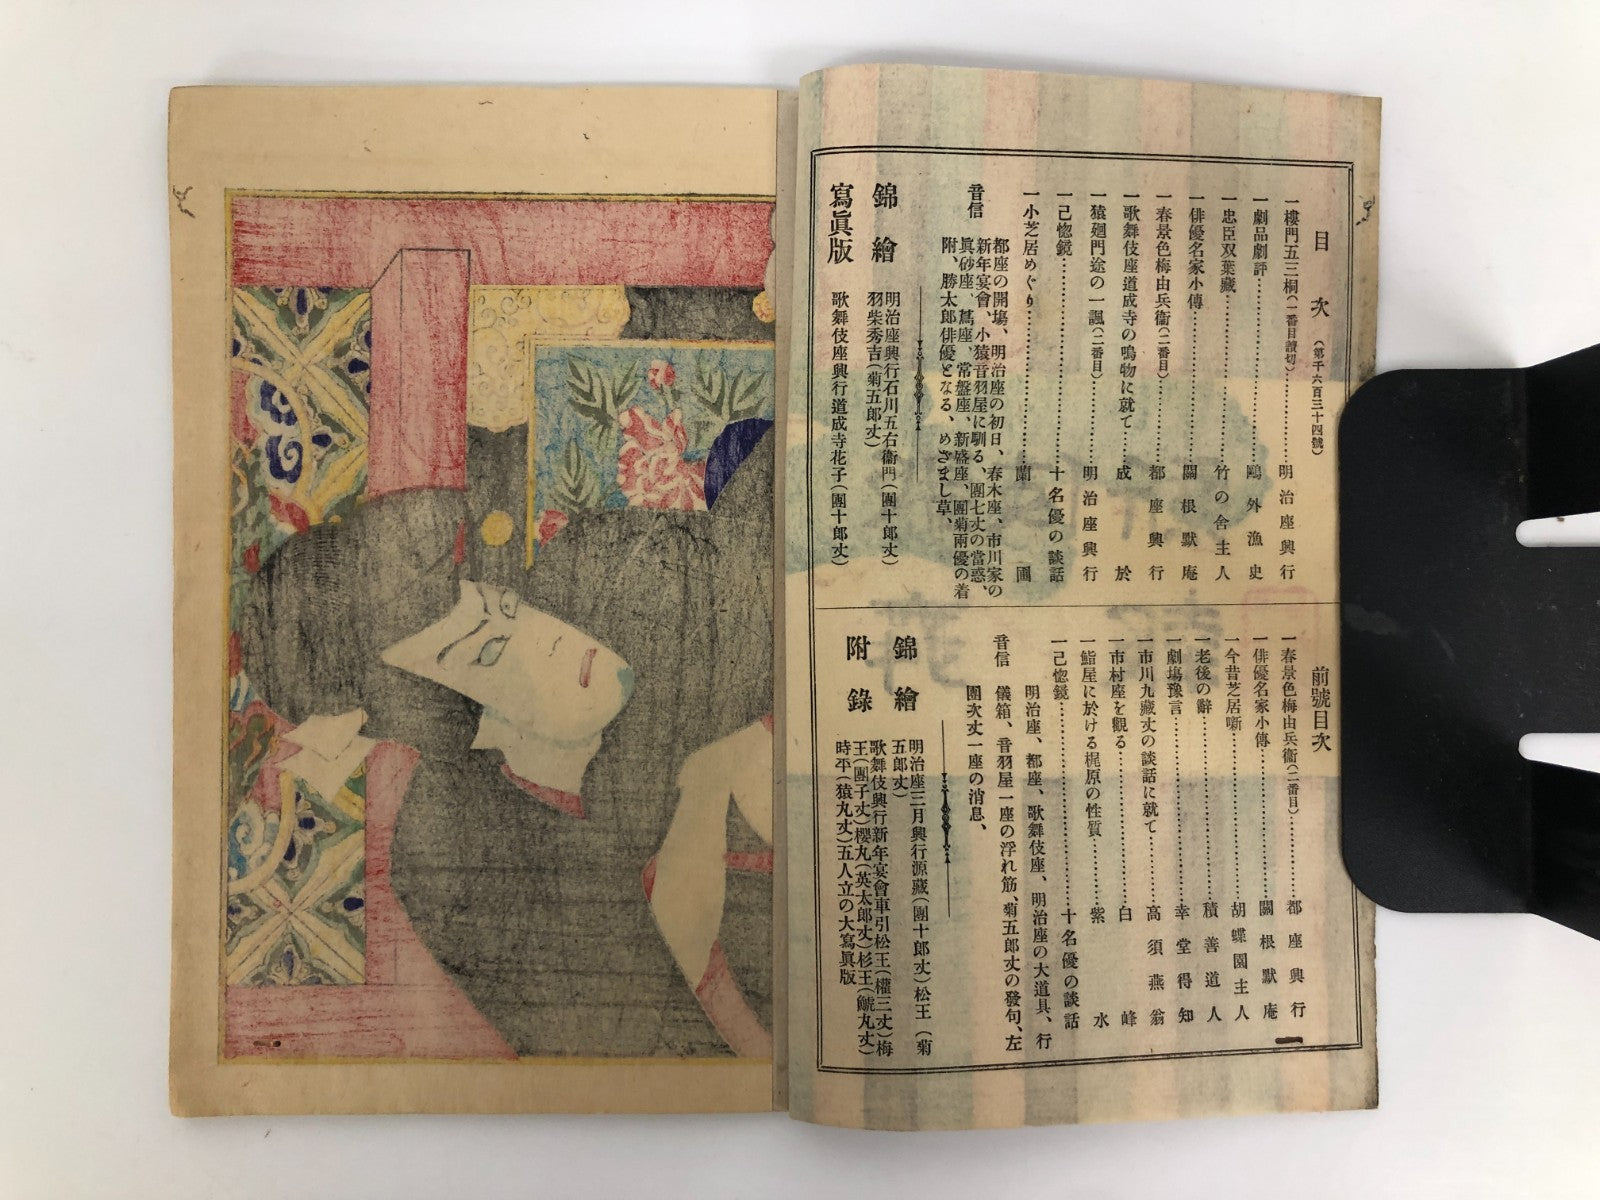 目次（第千六百三十四號）
一樓門五三桐（一番目讀切）……明治座興行
一劇品劇評……鷗外漁史
一忠臣双葉藏……竹の舍主人
一俳優名家小傳……關根默庵
一春景色梅由兵衞（二番目）……都座興行
一歌舞伎座道成寺の鳴物に就て……成於
一猿廻門途の一諷（二番目）……明治座興行
一己惚鏡……十名優の談話
一小芝居めぐり……蘭圃
音信
都座の開塲、明治座の初日、春木座、市川家の
新年宴會、小猿音羽屋に馴る、團七丈の當惑、
眞砂座、蔦座、常盤座、新盛座、團菊兩優の着
附、勝太郎俳優となる、めざまし草、
錦繪
明治座興行石川五右衞門（團十郎丈）
羽柴秀吉（菊五郎丈）
寫眞版
歌舞伎座興行道成寺花子（團十郎丈）
前號目次
一春景色梅由兵衞（二番目）……都座興行
一俳優名家小傳……關根默庵
一今昔芝居噺……胡蝶園主人
一老後の辭……積善道人
一劇塲豫言……幸堂得知
一市川九藏丈の談話に就て……高須燕翁
一市村座を觀る……白峰
一鮨屋に於ける梶原の性質……紫水
一己惚鏡……十名優の談話
音信
明治座、都座、歌舞伎座、明治座の大道具、行
儀箱、音羽屋一座の浮れ筋、菊五郎丈の發句、左
團次丈一座の消息、
錦繪
明治座二月興行源藏（團十郎丈）松王（菊
五郎丈）
附錄
歌舞伎興行新年宴會車引松王（權三丈）梅
王（團子丈）櫻丸（英太郎丈）杉王（鯱丸丈）
時平（猿丸丈）五人立の大寫眞版